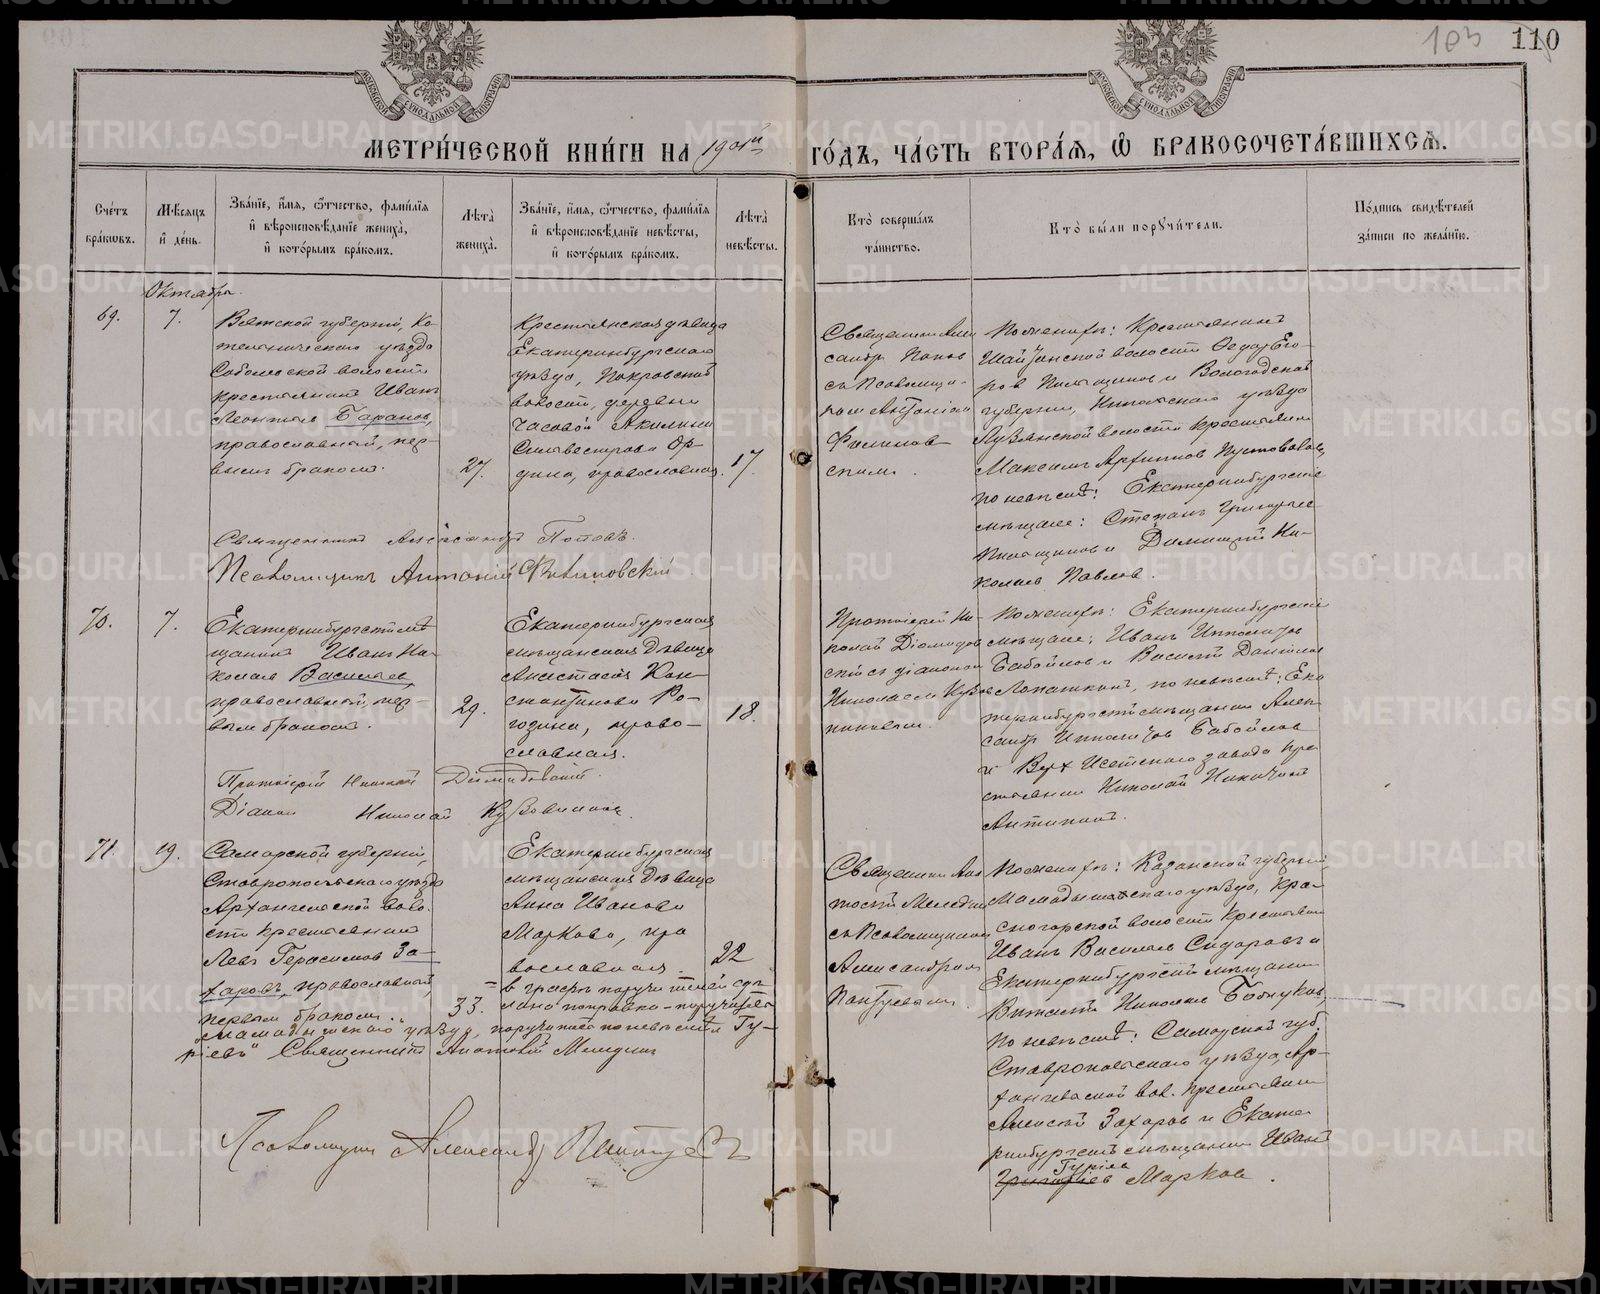 103 110
МЕТРИЧЕСКОЙ КНИГИ НА 1901й ГОДЪ, ЧАСТЬ ВТОРАЯ, Ѿ БРАКОСОЧЕТАВШИХСЯ.
Счетъ браковъ.
Мѣсяцъ и день.
Званіе, имя, отчество, фамилія и вѣроисповѣданіе жениха, и которымъ бракомъ.
Лѣта жениха.
Званіе, имя, отчество, фамилія и вѣроисповѣданіе невѣсты, и которымъ бракомъ.
Лѣта невѣсты.
Кто совершалъ таинство.
Кто были поручители.
Подпись свидѣтелей записи по желанію.
Октябрь.
69.
7.
Вятской губерніи, Ко-
тельническаго уѣзда
волости
крестьянинъ Иванъ
Леонтьевъ Баранов,
православный, пер-
вымъ бракомъ.
27.
Крестьянская дѣвица
Екатеринбургскаго
уѣзда, Покровской
волости, деревни
Часовой Акилина
Сильвестрова Ор-
дина, православная.
17.
Священник Алек
сандръ Попов
съ Псаломщи-
комъ Антоніем
Филинов
ским.
По женихѣ: Крестьянинъ
волости Ѳедоръ Его-
ров и Вологодской
губерніи, Никольскаго уѣзда
волости крестьянин
Максимъ Архипов Пустовалов,
по невѣстѣ: Екатеринбургскіе
мѣщане: Степанъ Григорьев
и Димитрій Ни-
колаев Павлов.
Священникъ Александръ Поповъ.
Псаломщикъ Антоній Филиновскій
70.
7.
Екатеринбургскій мѣ
щанинъ Иванъ Ни-
колаев Васильев,
православный, пер-
вым браком.
29.
Екатеринбургская
мѣщанская дѣвица
Анастасія Кон-
стантинова Ро-
гозина, право-
славная.
18.
Протоіерей Ни-
колай Діомидов
скій съ діаконом
Николаем Кузов
никовым.
По женихѣ: Екатеринбургскіе
мѣщане: Иванъ Ипполитов
Бабойлов и Василій Данилов
Лопаткин, по невѣстѣ: Ека
теринбургскій мѣщанин Алек
сандр Ипполитов Бабойлов
и Верх Исетскаго завода кре
стьянин Николай Никитин
Антипин.
Протоіерей Николай Діомидовскій.
Діакон Николай Кузовников.
71.
19.
Самарской губерніи,
Ставропольскаго уѣзда
Архангельской воло-
сти крестьянинъ
Левъ Герасимов За-
харовъ, православный,
первым браком.
33.
Екатеринбургская
мѣщанская дѣвица
Анна Иванова
Маркова, пра
вославная.
22
Священник Ана
толій Мелединъ
съ Псаломщиком
Александром
Пантуевым.
По женихѣ: Казанской губерніи,
Мамадышскаго уѣзда, Крас
ногорской волости крестьянин
Иванъ Васильев Сидоровъ и
Екатеринбургскій мѣщанин
Виталій Николаев Бобыков,
по невѣстѣ: Самарской губ.
Ставропольскаго уѣзда, Ар-
хангельской вол. крестьянин
Алексѣй Захаров и Екате-
ринбургскій мѣщанин Иванъ
Гуріев
Григорьев Марков.
— в графѣ поручителей сдѣ
лана поправка — поручитель
„Мамадышскаго уѣзда, поручитель по невѣстѣ Гу-
ріевъ“ Священникъ Анатолій Мелединъ
Псаломщик Александръ Пантуевъ
METRIKI.GASO-URAL.RU